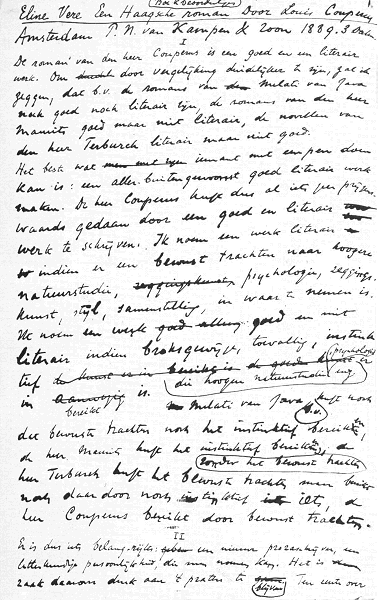 (Boekbeoordeeling)
Eline Vere Een Haagsche roman Door Louis Couperus,
Amsterdam P. N. van Kampen & Zoon 1889. 3 Deelen
I
De roman van den heer Couperus is een goed en een literair
werk. Om door vergelijking duidelijker te zijn, zal ik
zeggen, dat b.v. de romans van Melati van Java
noch goed noch literair zijn, de romans van den heer
Maurits goed maar niet literair, de novellen van
den heer Terburch literair maar niet goed.
Het beste wat iemant met een pen doen
kan is: een aller-buitengewoonst goed literair werk
maken. De heer Couperus heeft dus al iets zeer prijzens-
waards gedaan door een goed en literair
werk te schrijven. Ik noem een werk literair
indien er een bewust trachten naar hoogere
natuurstudie, psychologie, zeggings-
kunst, stijl, samenstelling, in waar te nemen is.
Ik noem een werk goed en niet
literair indien broksgewijze, toevallig, instink-
tief (psychologie
die hoogere natuurstudie enz.
in bereikt is. Melati van Java heeft noch
b.v.
het bewuste trachten noch het instinktief bereiken,
de heer Maurits heeft het instinktief bereiken, de
(zonder het bewuste trachten)
heer Terburch heeft het bewuste trachten maar bereikt
noch daardoor noch instinktief iets, de
heer Couperus bereikt door bewust trachten.
II
Er is dus iets belangrijks: een nieuwe prozaschrijver, een
letterkundige persoonlijkheid, die men noemen kan. Het is
zaak daarom druk aan 't praten te
blijven. Ten eerste over